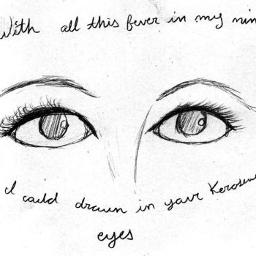 With all this fever in my min
I could drown in your Kerosene
eyes